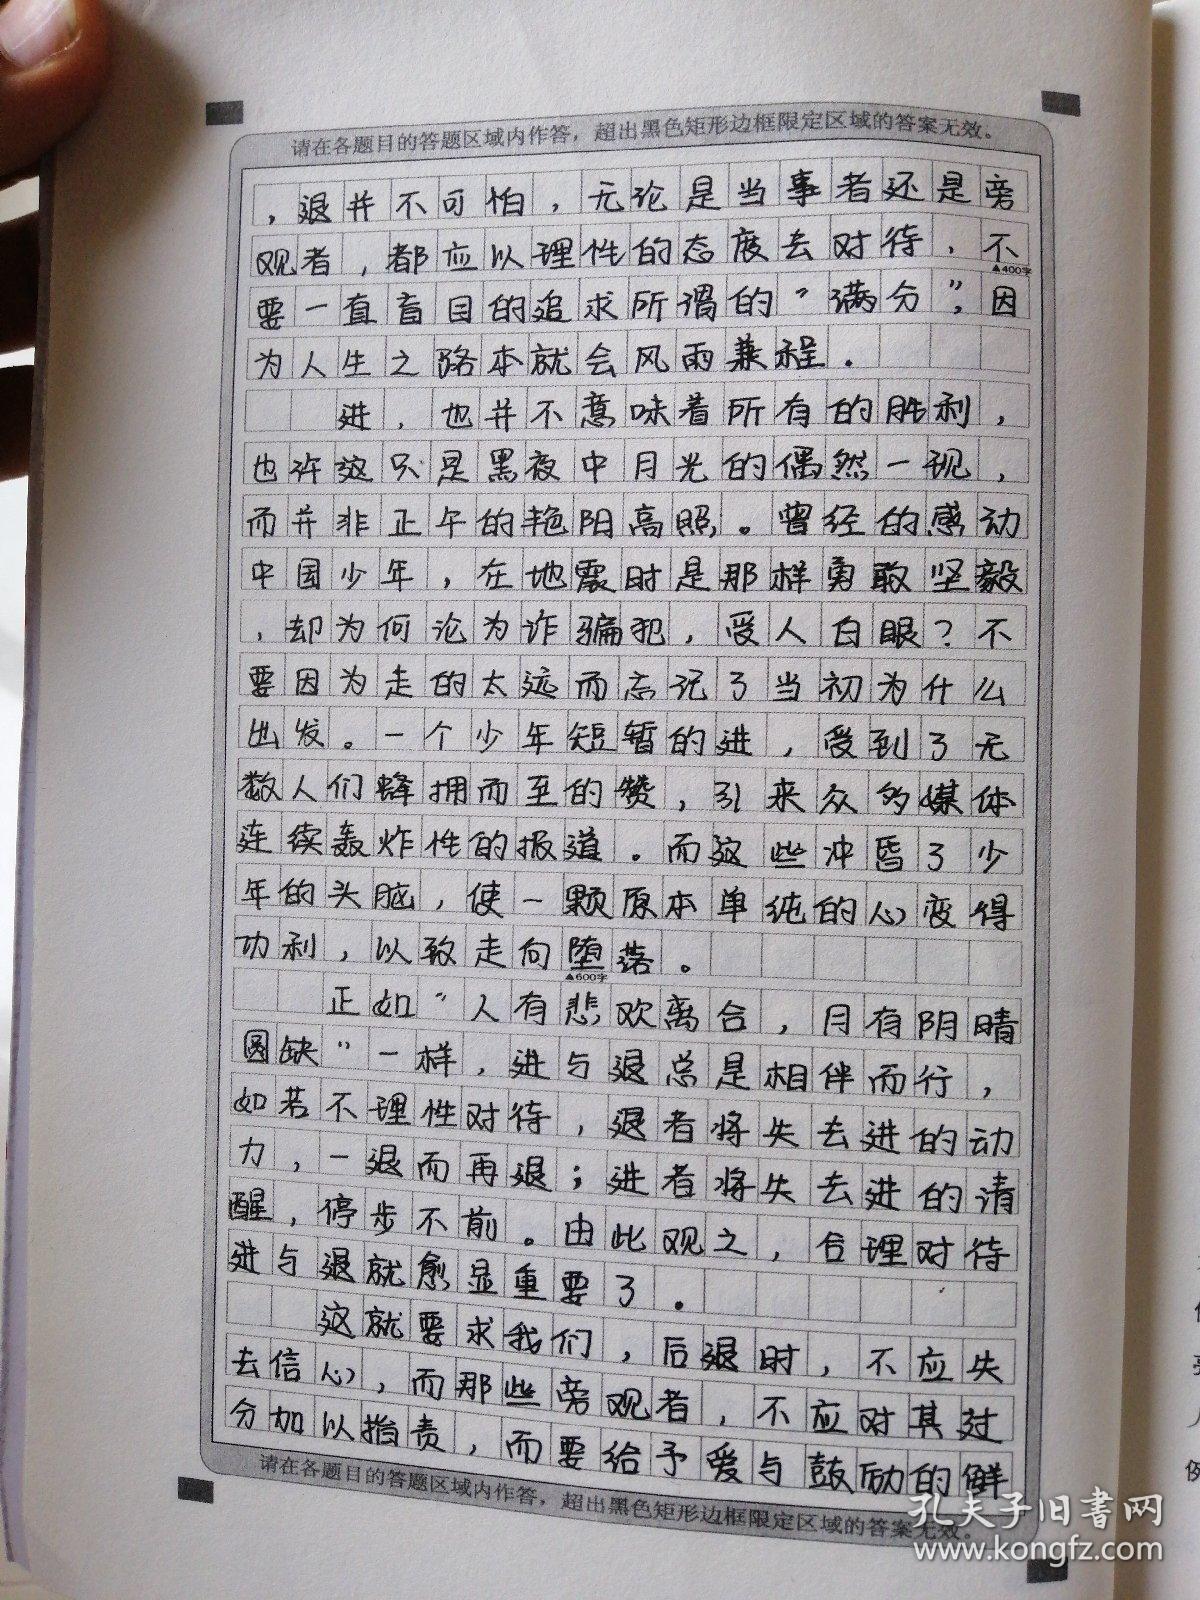 请在各题目的答题区域内作答，超出黑色矩形边框限定区域的答案无效。
，退并不可怕，无论是当事者还是旁
观者，都应以理性的态度去对待，不
▲400字
要一直盲目的追求所谓的“满分”，因
为人生之路本就会风雨兼程．
进，也并不意味着所有的胜利，
也许这只是黑夜中月光的偶然一现，
而并非正午的艳阳高照。曾经的感动
中国少年，在地震时是那样勇敢坚毅
，却为何沦为诈骗犯，受人白眼？不
要因为走的太远而忘记了当初为什么
出发。一个少年短暂的进，受到了无
数人们蜂拥而至的赞，引来众多媒体
连续轰炸性的报道。而这些冲昏了少
年的头脑，使一颗原本单纯的心变得
功利，以致走向堕落。
▲600字
正如“人有悲欢离合，月有阴晴
圆缺”一样，进与退总是相伴而行，
如若不理性对待，退者将失去进的动
力，一退而再退；进者将失去进的清
醒，停步不前。由此观之，合理对待
进与退就愈显重要了。
这就要求我们，后退时，不应失
去信心，而那些旁观者，不应对其过
分加以指责，而要给予爱与鼓励的鲜
请在各题目的答题区域内作答，超出黑色矩形边框限定区域的答案无效。
孔夫子旧书网
www.kongfz.com